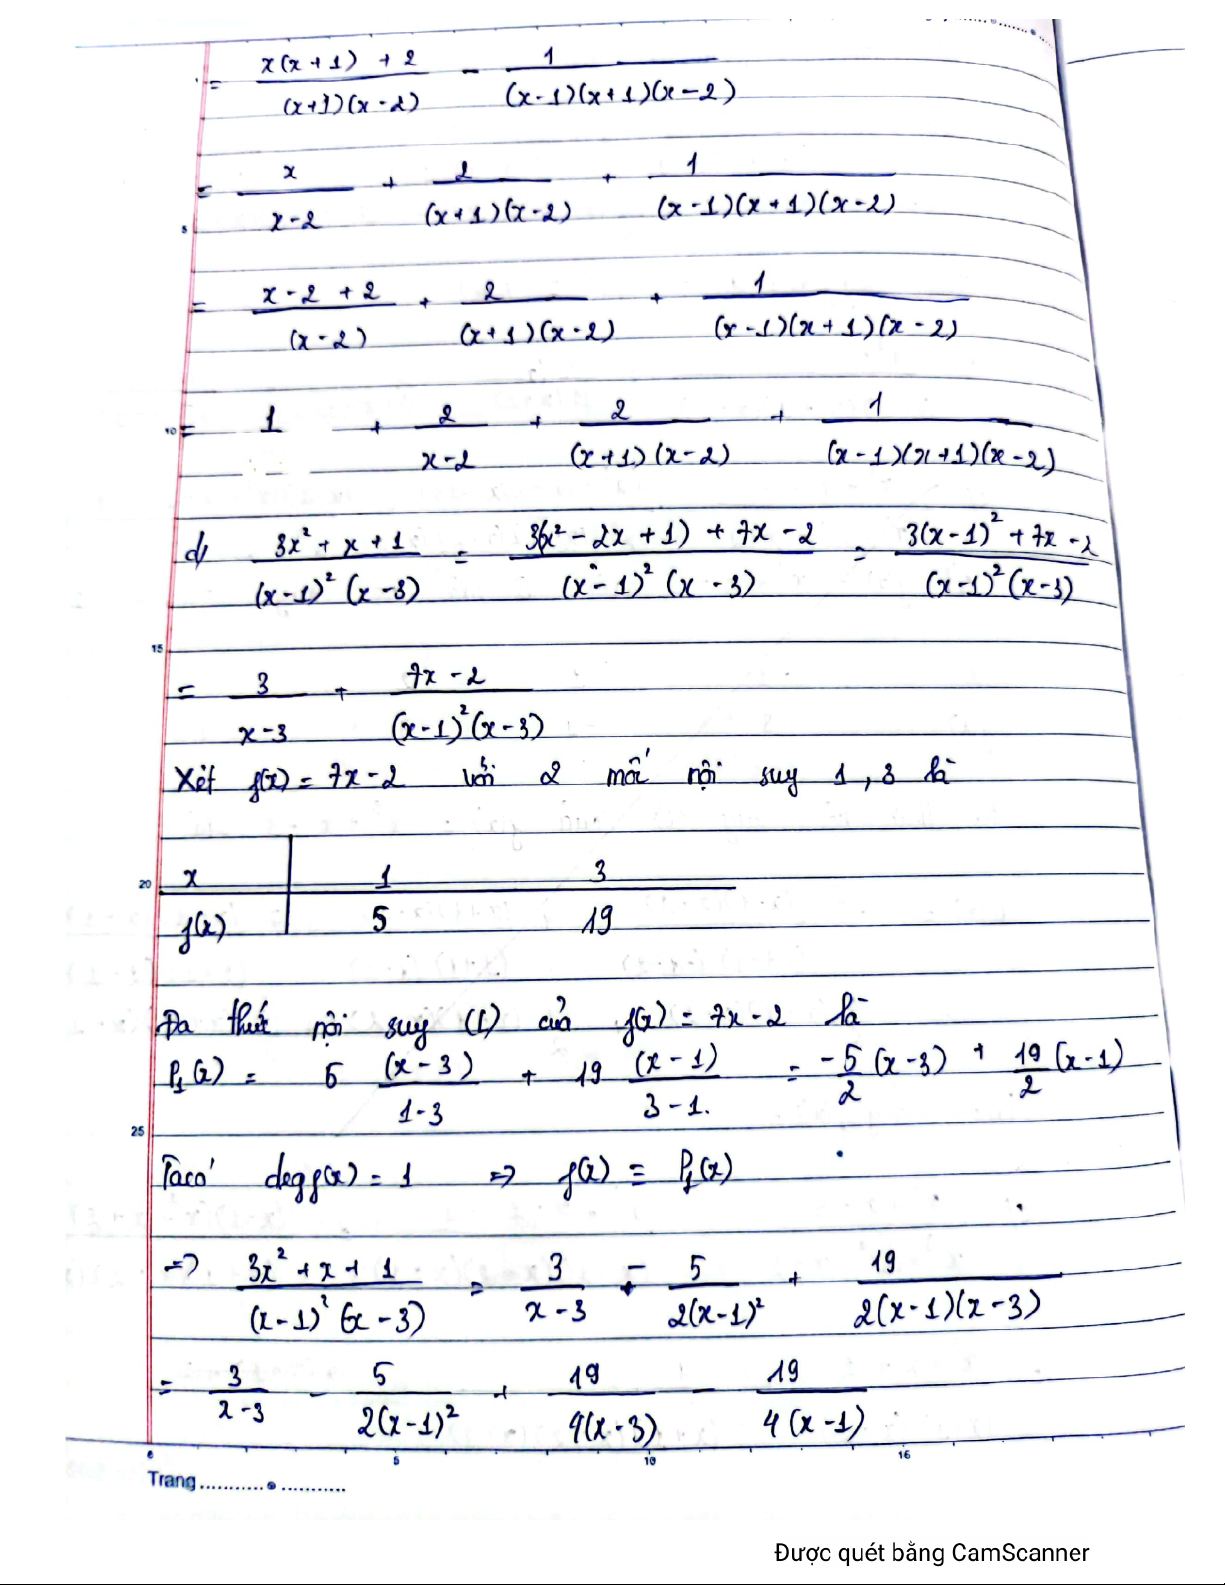 = (x(x+1) + 2)/((x+1)(x-2)) - 1/((x-1)(x+1)(x-2))
= x/(x-2) + 2/((x+1)(x-2)) + 1/((x-1)(x+1)(x-2))
5
= (x-2+2)/(x-2) + 2/((x+1)(x-2)) + 1/((x-1)(x+1)(x-2))
10 = 1 + 2/(x-2) + 2/((x+1)(x-2)) + 1/((x-1)(x+1)(x-2))
d) (3x² + x + 1)/((x-1)²(x-3)) = (3(x² - 2x + 1) + 7x - 2)/((x-1)²(x-3)) = (3(x-1)² + 7x - 2)/((x-1)²(x-3))
15
= 3/(x-3) + (7x-2)/((x-1)²(x-3))
Xét f(x) = 7x-2 với 2 mốc nội suy 1, 3 là
20 x | 1 3
f(x) | 5 19
Đa thức nội suy (L) của f(x) = 7x-2 là
P₁(x) = 5 (x-3)/(1-3) + 19 (x-1)/(3-1) = -5/2 (x-3) + 19/2 (x-1)
25
Ta có deg f(x) = 1 => f(x) ≡ P₁(x)
=> (3x² + x + 1)/((x-1)²(x-3)) = 3/(x-3) - 5/(2(x-1)²) + 19/(2(x-1)(x-3))
= 3/(x-3) - 5/(2(x-1)²) + 19/(4(x-3)) - 19/(4(x-1))
0 5 10 15
Trang
Được quét bằng CamScanner